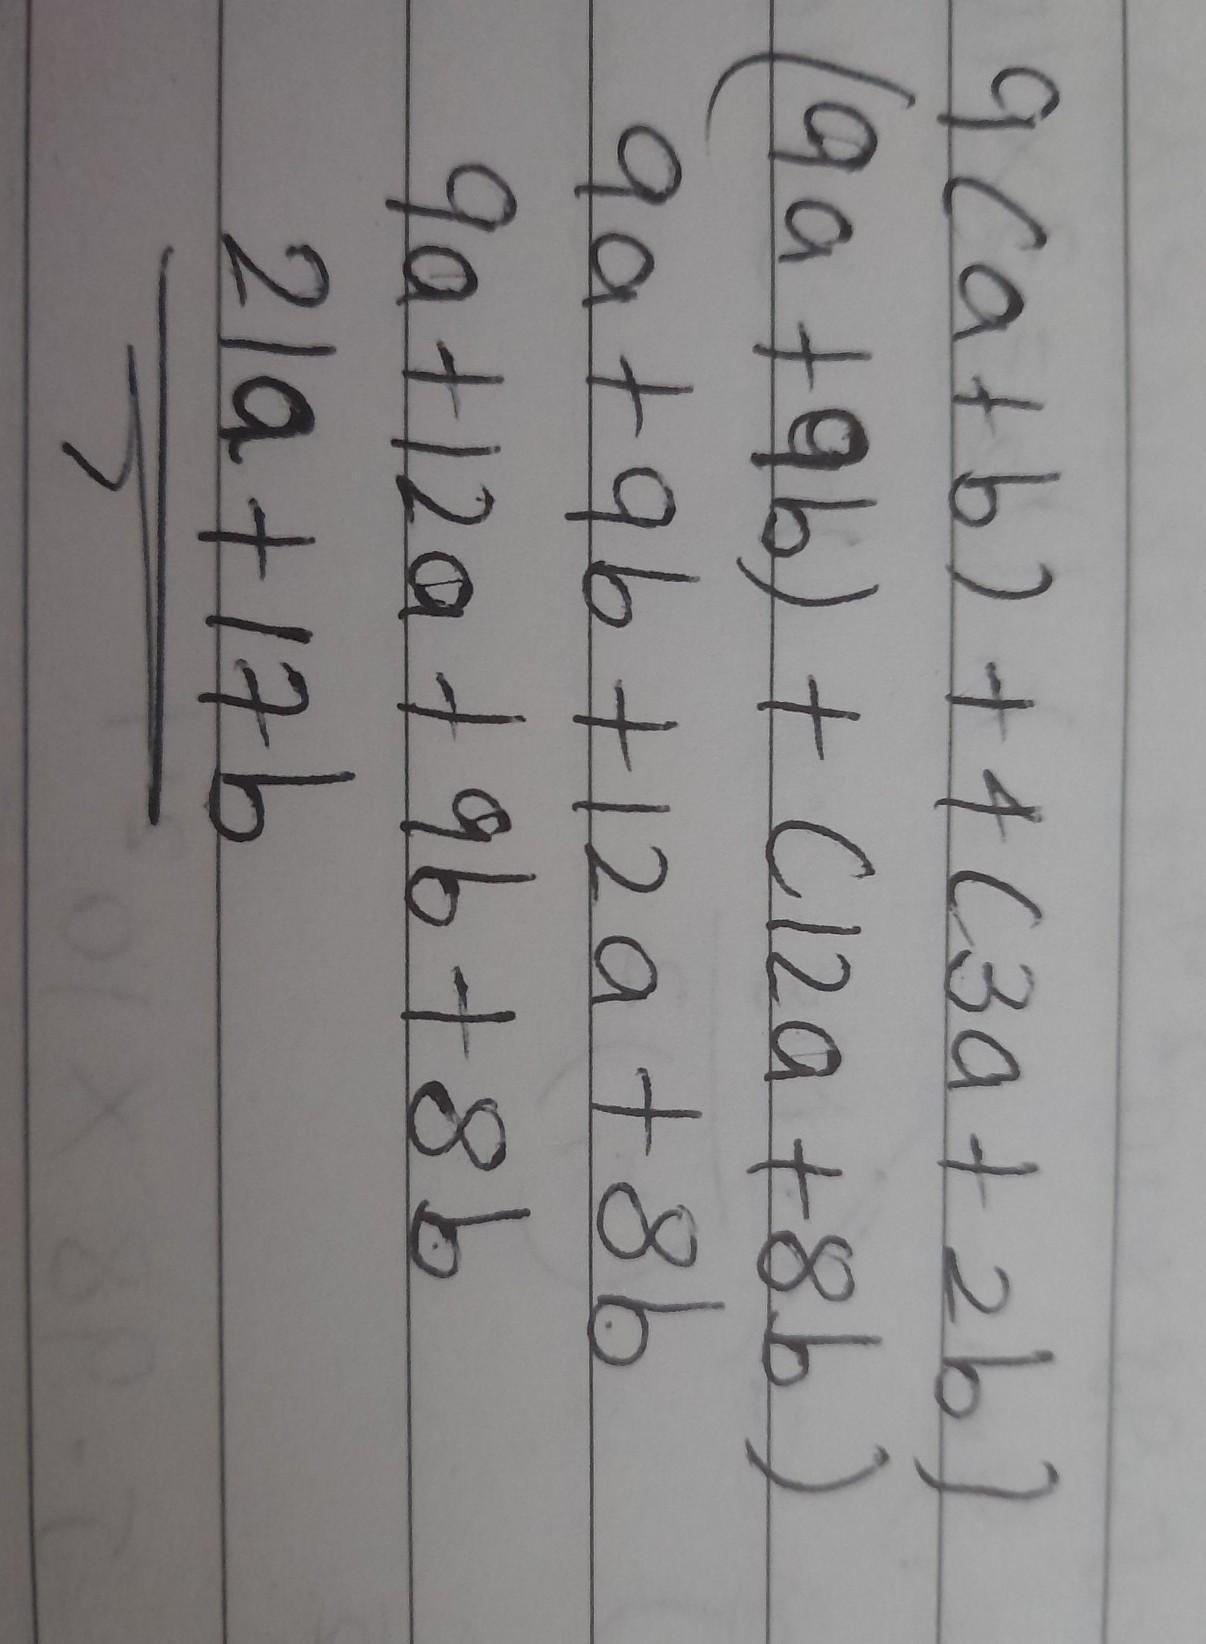 9(a+b) + 4(3a+2b)
(9a+9b) + (12a+8b)
9a+9b+12a+8b
9a+12a+9b+8b
21a+17b